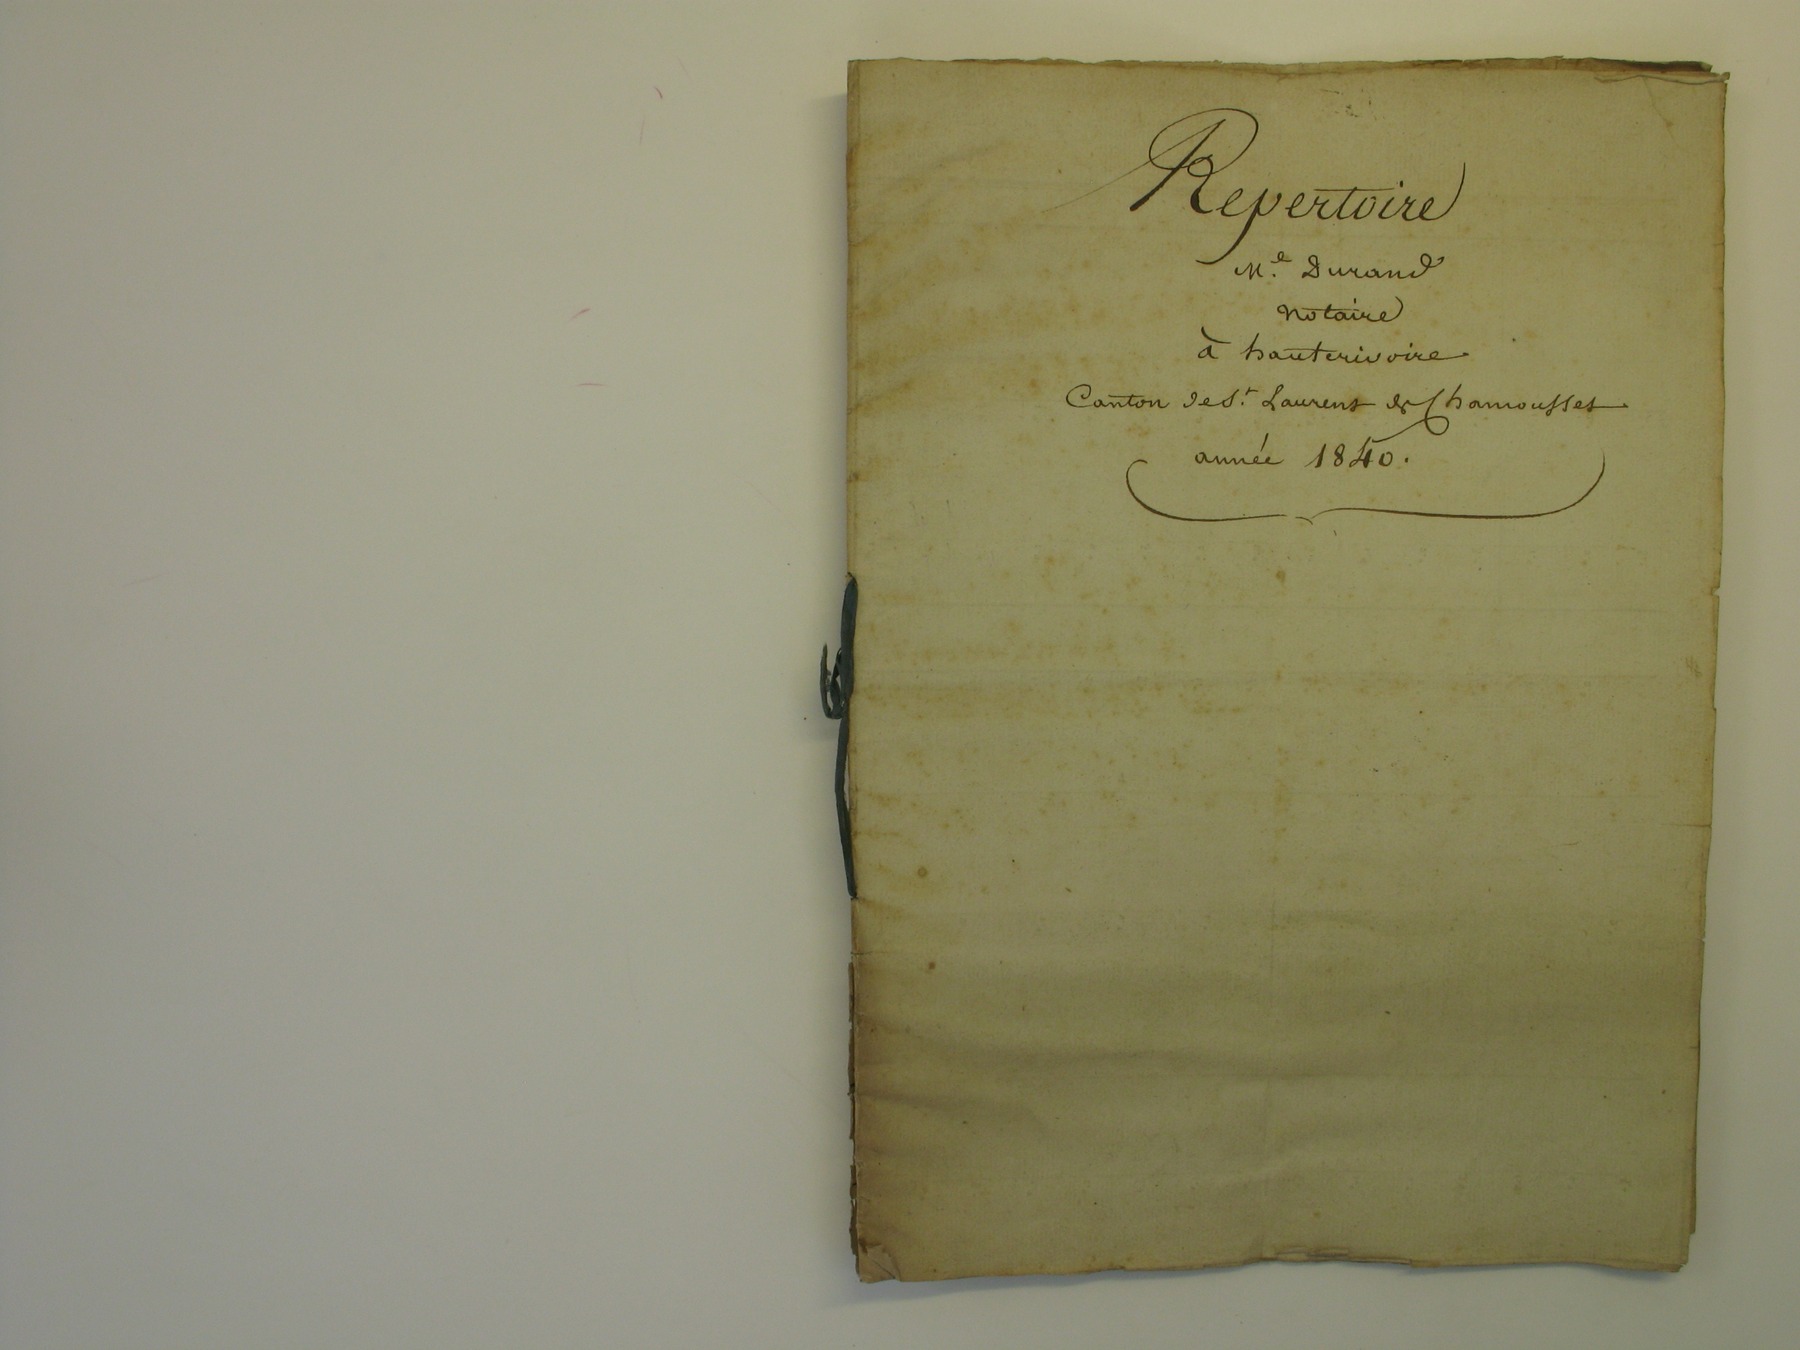 Repertoire
M.e Durand
notaire
à hauterivoire
Canton de S.t Laurent de Chamousset
année 1840.